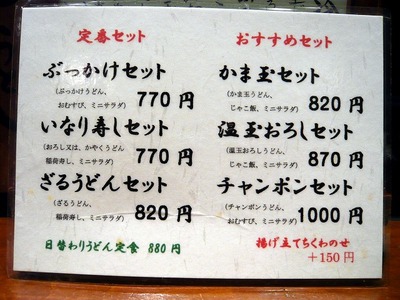 定番セット
ぶっかけセット
(ぶっかけうどん、
おむすび、ミニサラダ)
770 円
いなり寿しセット
(おろし又は、かやくうどん
稲荷寿し、ミニサラダ)
770 円
ざるうどんセット
(ざるうどん、
稲荷寿し、ミニサラダ)
820 円
日替わりうどん定食 880円
おすすめセット
かま玉セット
(かま玉うどん、
じゃこ飯、ミニサラダ)
820 円
温玉おろしセット
(温玉おろしうどん、
じゃこ飯、ミニサラダ)
870 円
チャンポンセット
(チャンポンうどん、
おむすび、ミニサラダ)
1000 円
揚げ立てちくわのせ
+150 円